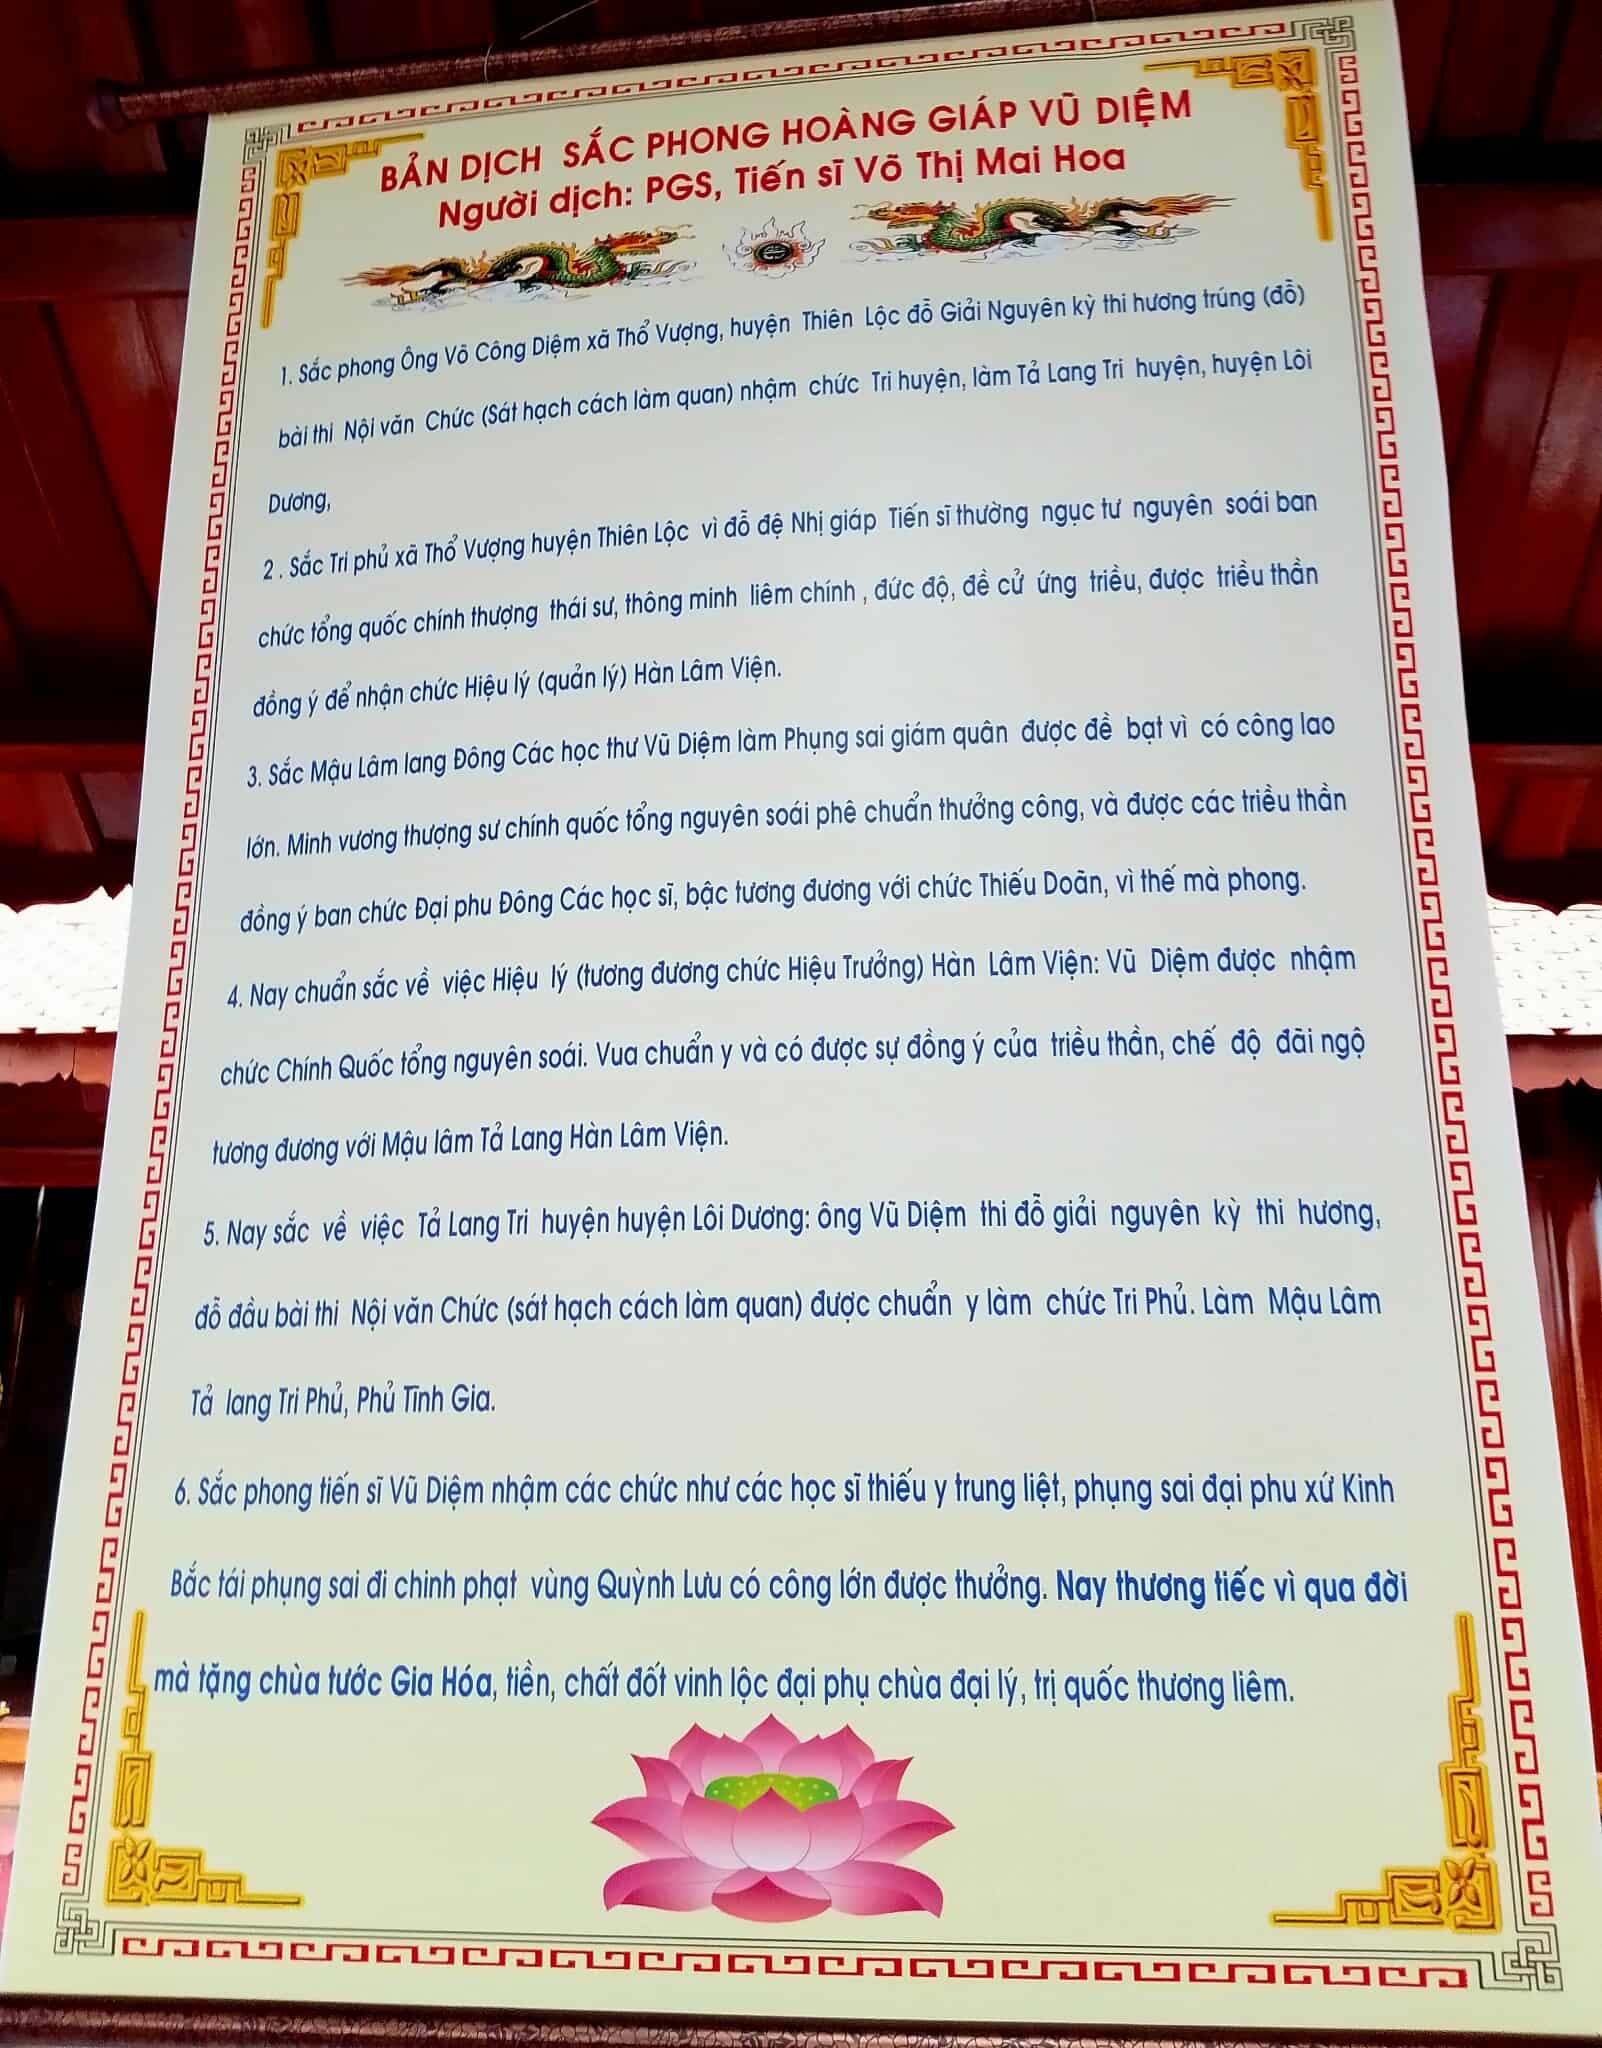 BẢN DỊCH SẮC PHONG HOÀNG GIÁP VŨ DIỆM
Người dịch: PGS, Tiến sĩ Võ Thị Mai Hoa
1. Sắc phong Ông Võ Công Diệm xã Thổ Vượng, huyện Thiên Lộc đỗ Giải Nguyên kỳ thi hương trúng (đỗ)
bài thi Nội văn Chức (Sát hạch cách làm quan) nhậm chức Tri huyện, làm Tả Lang Tri huyện, huyện Lôi
Dương,
2 . Sắc Tri phủ xã Thổ Vượng huyện Thiên Lộc vì đỗ đệ Nhị giáp Tiến sĩ thường ngục tư nguyên soái ban
chức tổng quốc chính thượng thái sư, thông minh liêm chính , đức độ, đề cử ứng triều, được triều thần
đồng ý để nhận chức Hiệu lý (quản lý) Hàn Lâm Viện.
3. Sắc Mậu Lâm lang Đông Các học thư Vũ Diệm làm Phụng sai giám quân được đề bạt vì có công lao
lớn. Minh vương thượng sư chính quốc tổng nguyên soái phê chuẩn thưởng công, và được các triều thần
đồng ý ban chức Đại phu Đông Các học sĩ, bậc tương đương với chức Thiếu Doãn, vì thế mà phong.
4. Nay chuẩn sắc về việc Hiệu lý (tương đương chức Hiệu Trưởng) Hàn Lâm Viện: Vũ Diệm được nhậm
chức Chính Quốc tổng nguyên soái. Vua chuẩn y và có được sự đồng ý của triều thần, chế độ đãi ngộ
tương đương với Mậu lâm Tả Lang Hàn Lâm Viện.
5. Nay sắc về việc Tả Lang Tri huyện huyện Lôi Dương: ông Vũ Diệm thi đỗ giải nguyên kỳ thi hương,
đỗ đầu bài thi Nội văn Chức (sát hạch cách làm quan) được chuẩn y làm chức Tri Phủ. Làm Mậu Lâm
Tả lang Tri Phủ, Phủ Tĩnh Gia.
6. Sắc phong tiến sĩ Vũ Diệm nhậm các chức như các học sĩ thiếu y trung liệt, phụng sai đại phu xứ Kinh
Bắc tái phụng sai đi chinh phạt vùng Quỳnh Lưu có công lớn được thưởng. Nay thương tiếc vì qua đời
mà tặng chùa tước Gia Hóa, tiền, chất đốt vinh lộc đại phụ chùa đại lý, trị quốc thương liêm.